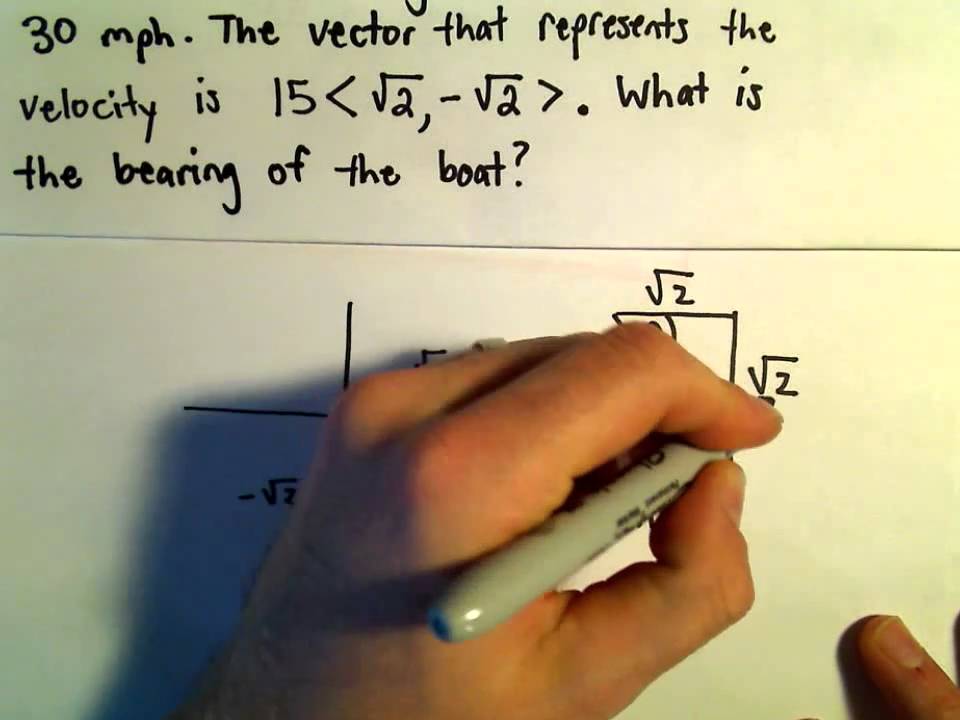 30 mph. The vector that represents the
velocity is 15 < √2, -√2 >. What is
the bearing of the boat?
√2
√2
-√2